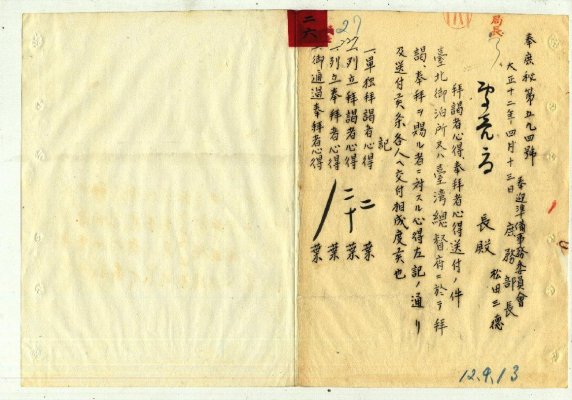 局長
奉庶秘第五九四號
大正十二年四月十三日
奉迎準備事務委員會
庶務部長
松田三德
長殿
拜謁者心得、奉拜者心得送付ノ件
臺北御泊所又ハ臺灣總督府ニ於テ拜
謁、奉拜ヲ賜ル者ニ対スル心得左記ノ通リ
及送付候条各人ヘ交付相成度候也
記
一、單独拜謁者心得 二葉
一、列立拜謁者心得 二十葉
一、列立奉拜者心得 葉
一、御通過奉拜者心得 葉
27
二六
12.9.13